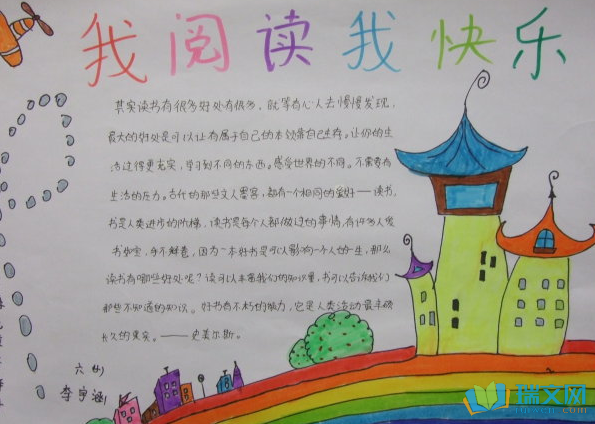 我阅读我快乐
其实读书有很多好处有很多,就等有心人去慢慢发现,
最大的好处是可以让有属于自己的本领靠自己生存。让你的生
活过得更充实,学习到不同的东西。感受世界的不同。不需要有
生活的压力。古代的那些文人墨客,都有个相同的爱好——读书,
书是人类进步的阶梯,读书是每个人都做过的事情,有许多人爱
书如宝,手不释卷,因为一本好书是可以影响一个人的一生,那么
读书有哪些好处呢?读可以丰富我们的知识量,书可以告诉我们
那些不知道的知识。好书有不朽的能力,它是人类活动最丰硕
长久的果实。——史美尔斯。
六(4)
李宇涵
瑞文网